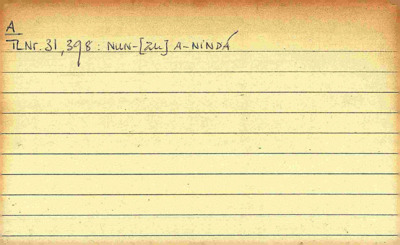 A
TLNr. 31,398: NUN-[ZU] A-NINDÁ